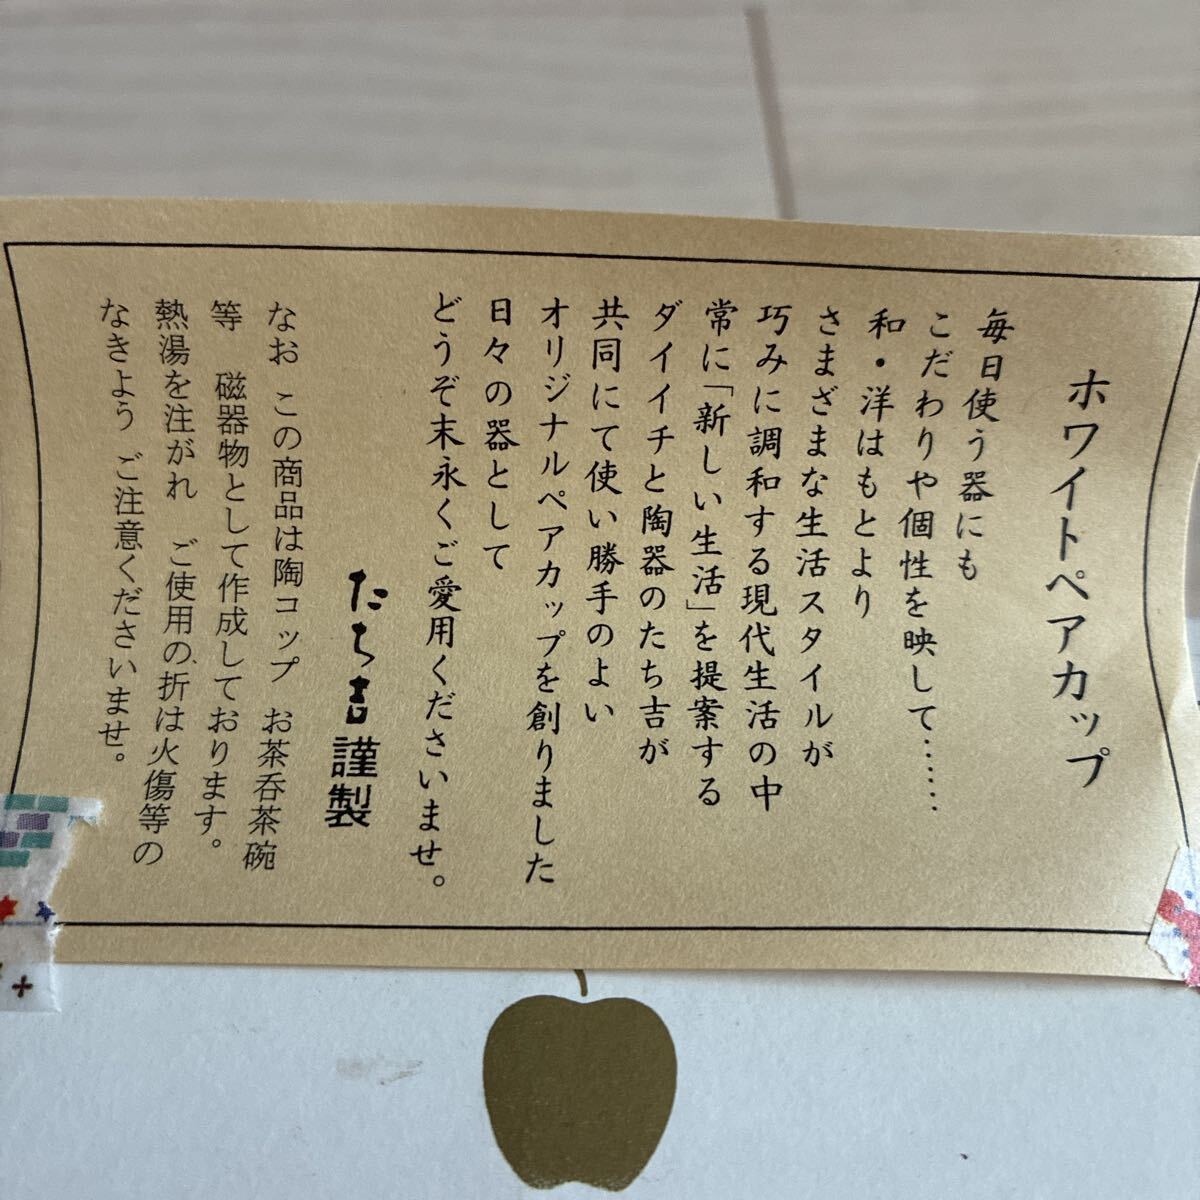 ホワイトペアカップ
毎日使う器にも
こだわりや個性を映して……
和・洋はもとより
さまざまな生活スタイルが
巧みに調和する現代生活の中
常に「新しい生活」を提案する
ダイイチと陶器のたち吉が
共同にて使い勝手のよい
オリジナルペアカップを創りました
日々の器として
どうぞ末永くご愛用くださいませ。
たち吉謹製
なお この商品は陶コップ お茶呑茶碗
等 磁器物として作成しております。
熱湯を注がれ ご使用の折は火傷等の
なきよう ご注意くださいませ。